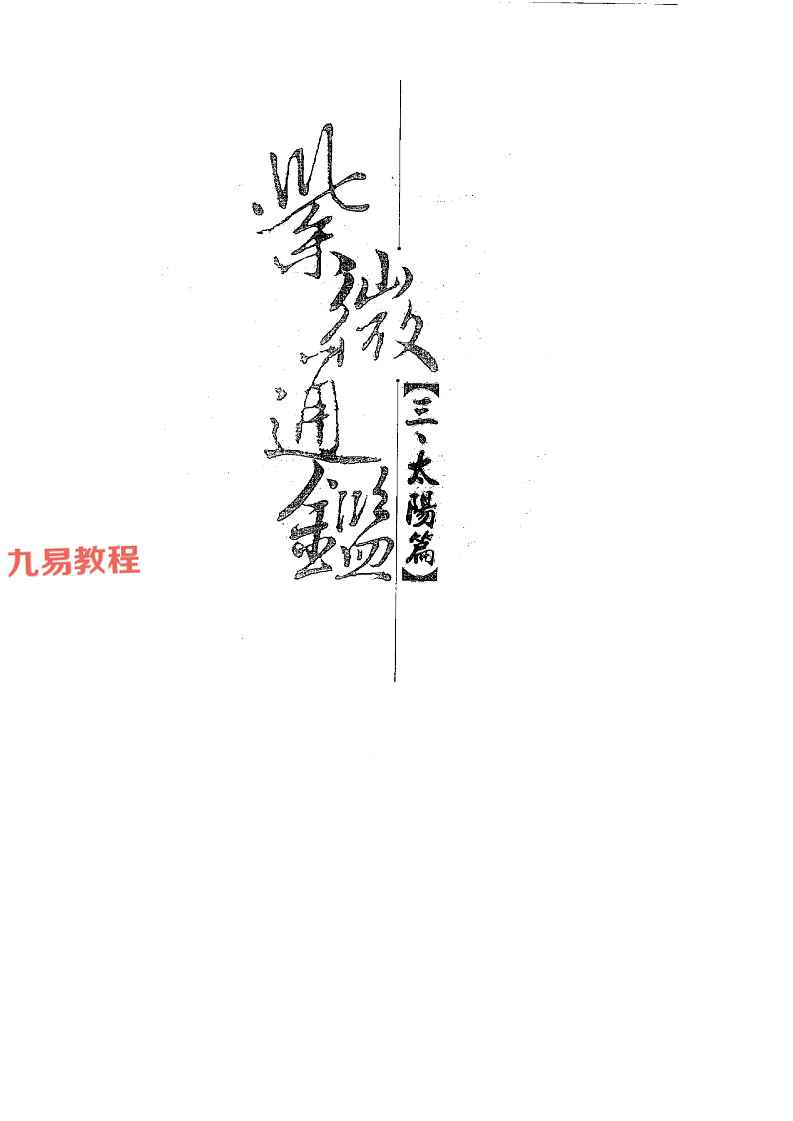 紫微通鑑
【三、太陽篇】
九易教程